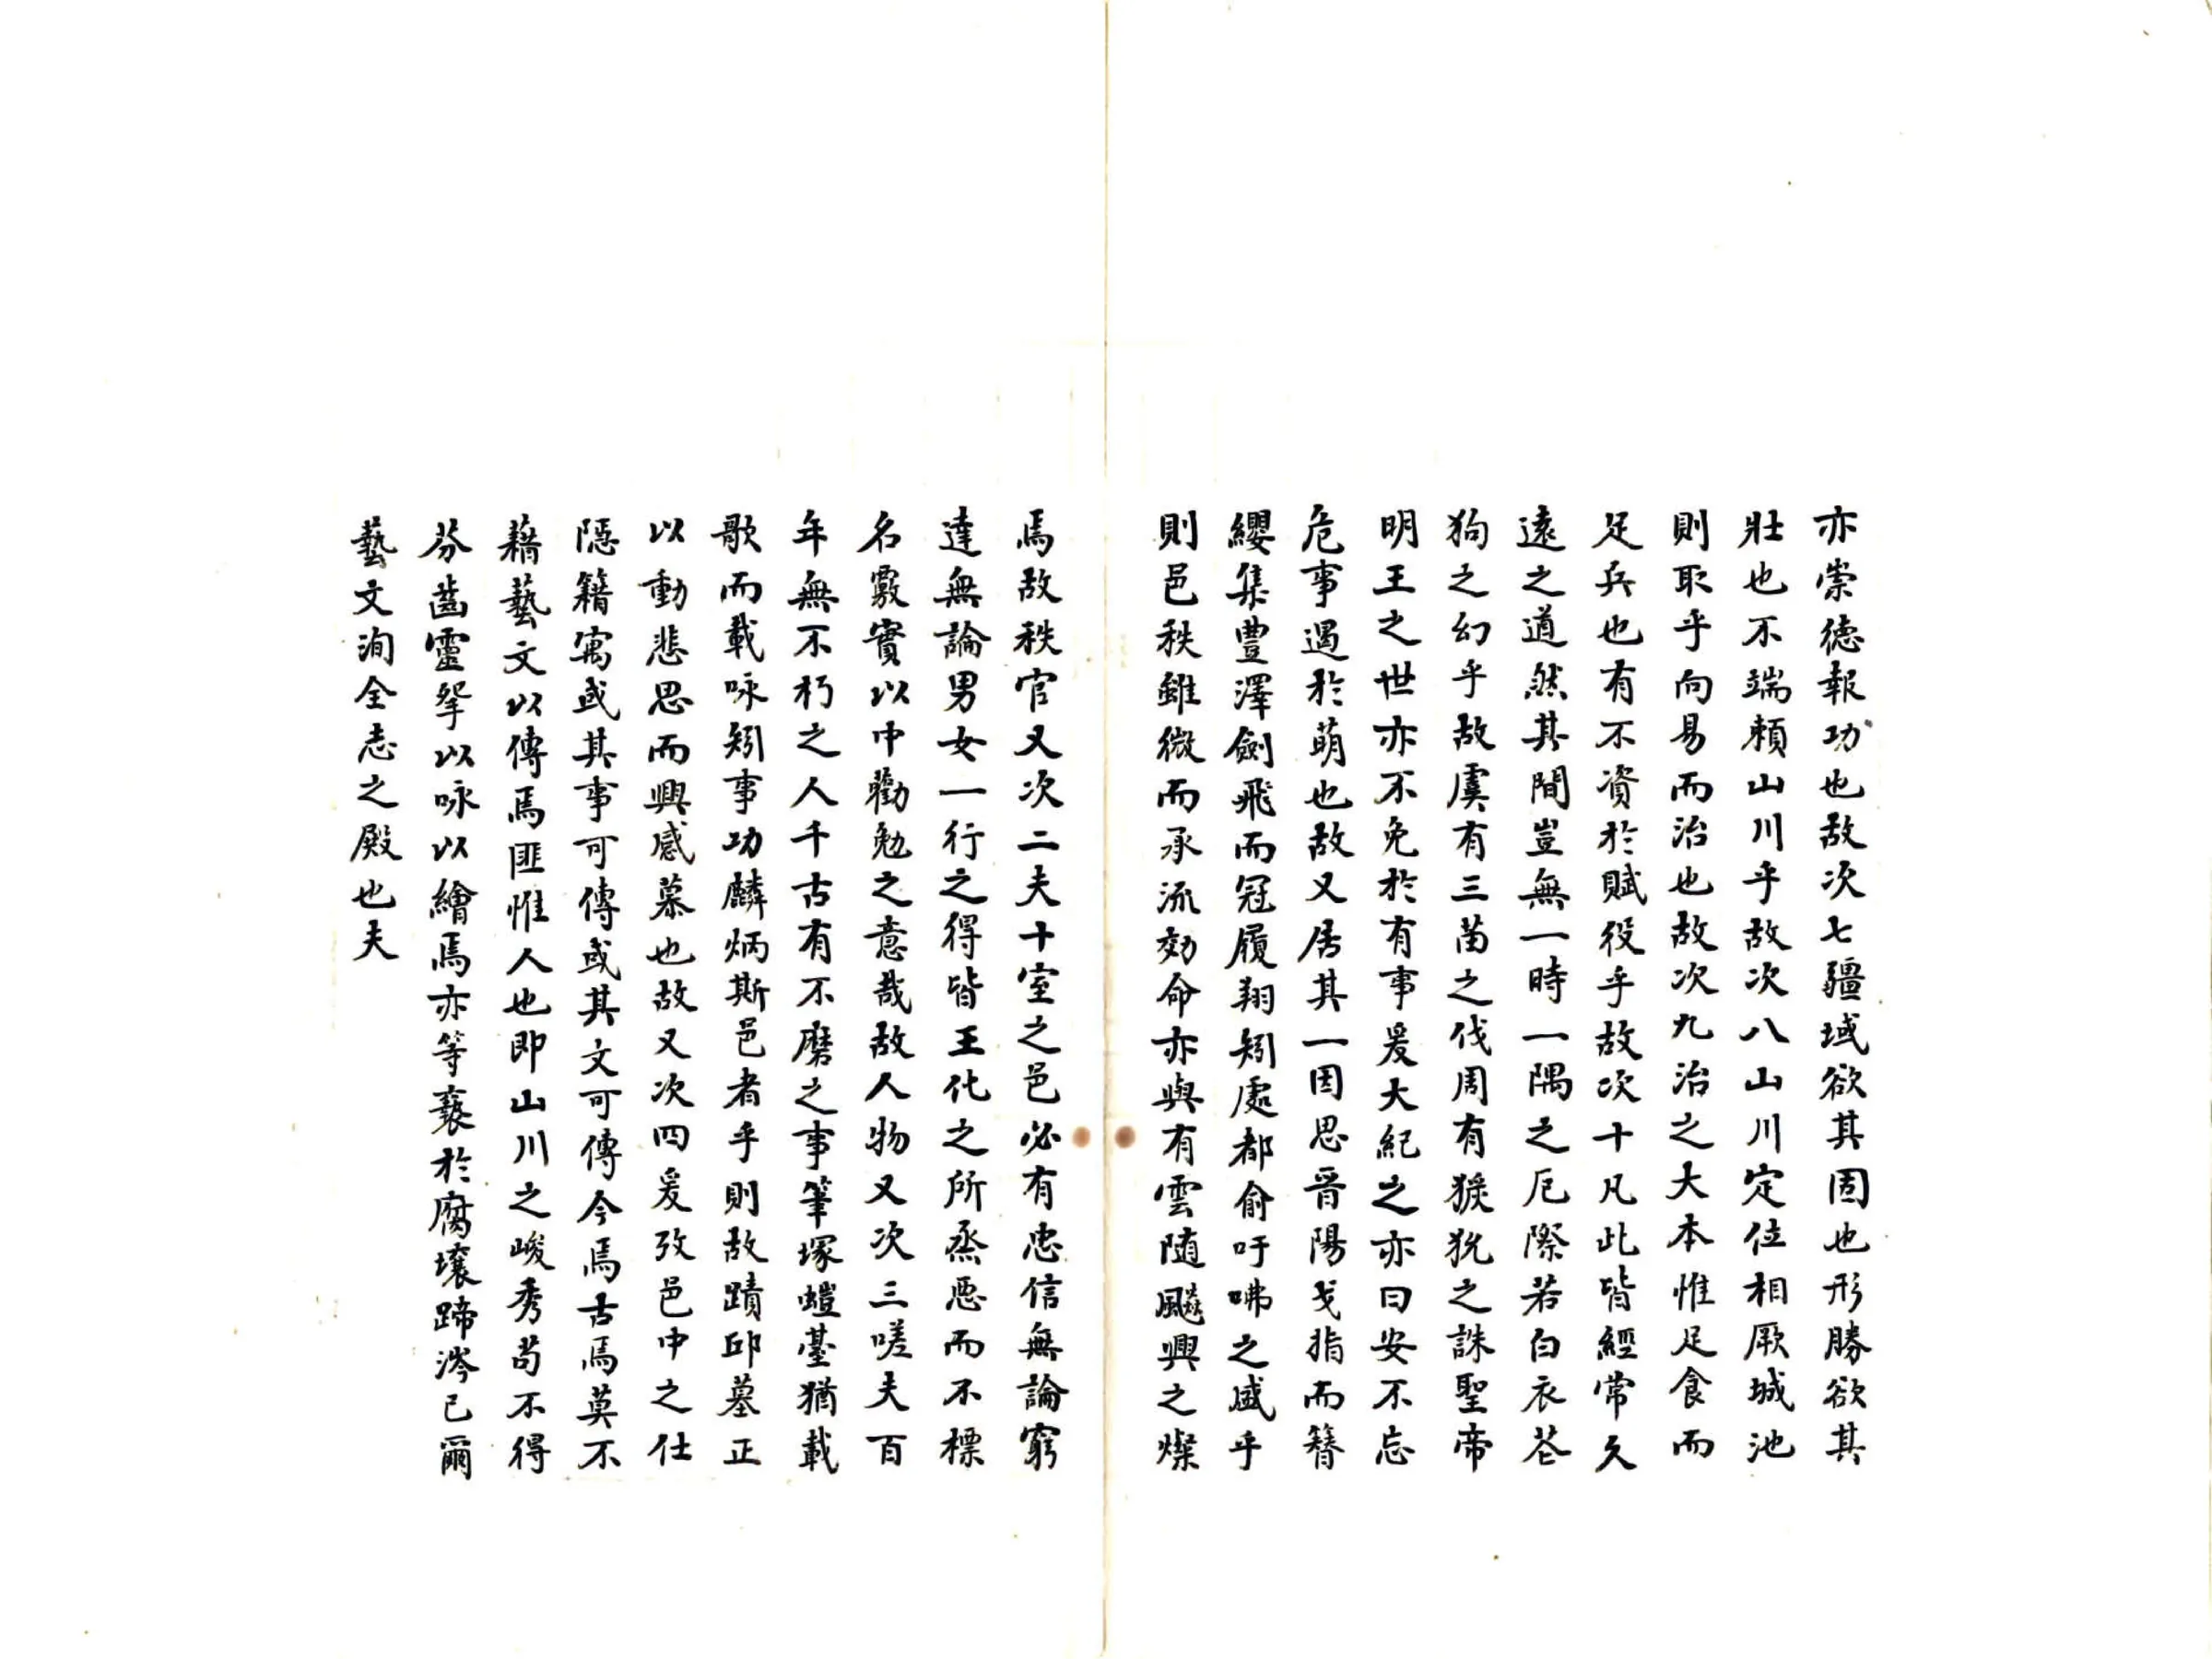 亦崇德報功也故次七疆域欲其固也形勝欲其
壯也不端賴山川乎故次八山川定位相厥城池
則取乎向易而治也故次九治之大本惟足食而
足兵也有不資於賦役乎故次十凡此皆經常久
遠之道然其間豈無一時一隅之厄際若白衣蒼
狗之幻乎故虞有三苗之伐周有玁狁之誅聖帝
明王之世亦不免於有事爰大紀之亦曰安不忘
危事遏於萌也故又居其一因思晉陽戈指而簪
纓集豐澤劍飛而冠履翔矧處都俞吁咈之盛乎
則邑秩雖微而承流効命亦與有雲随飈興之燦
焉故秩官又次二夫十室之邑必有忠信無論窮
達無論男女一行之得皆王化之所烝悪而不標
名覈實以中勸勉之意哉故人物又次三嗟夫百
年無不朽之人千古有不磨之事筆塚螘臺猶載
歌而載咏矧事功麟炳斯邑者乎則故蹟邱墓正
以動悲思而興感慕也故又次四爰攷邑中之仕
隱籍寓或其事可傳或其文可傳今焉古焉莫不
藉藝文以傳焉匪惟人也即山川之峻秀苟不得
芬齒靈挐以咏以繪焉亦等蓑於腐壤蹄涔已爾
藝文洵全志之殿也夫